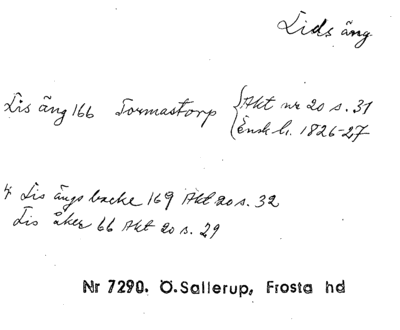 Lids äng
Lis äng 166 Tormastorp { Akt nr 20 s. 31
Ensk.h. 1826-27
4 Lis ängs backe 169 Akt 20 s. 32
Lis åker 66 Akt 20 s. 29
Nr 7290. Ö.Sallerup, Frosta hd